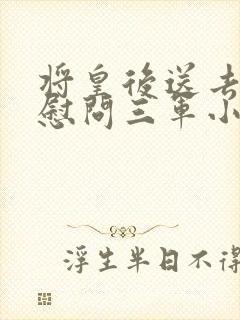 将皇後送去
慰問三軍小
浮生半日不得